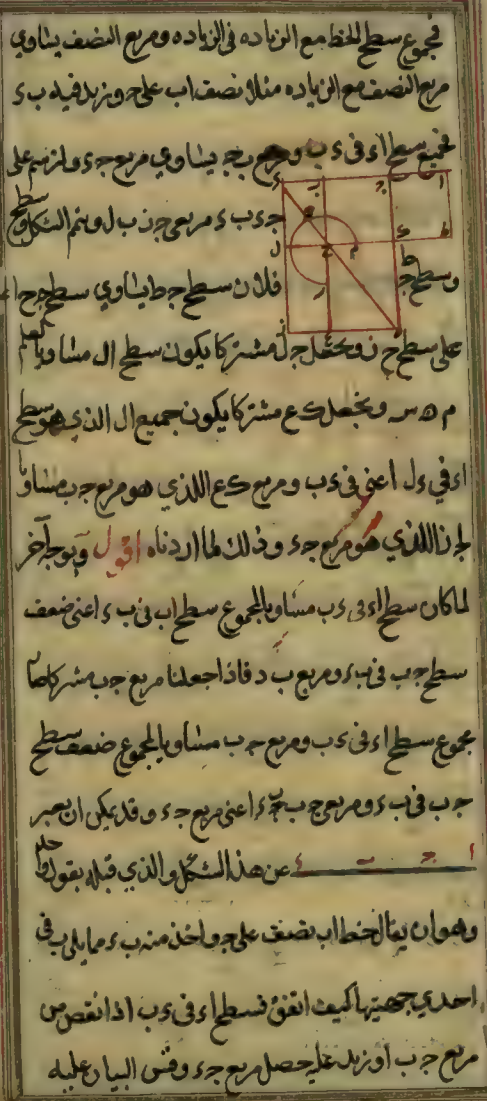 فمجموع سطح الخط مع الزياده فى الزياده ومربع النصف يساوى
مربع النصف مع الزياده مثلا نصف اب على ج و زيد فيه ب ء
فجميع سطح اء فى ء ب و مربع ب ج يساوى مربع ج ء ولنرسم على
ج ء ب ء مربعى ج ن ب ل و نتم الشكل و سطح
وسطح ج فلان سطح ج ط يساوى سطح
على سطح ح ن و نجعل ج ل مشتركا يكون سطح ال مساويا لعلم
م ه س و نجعل ك ع مشتركا يكون جميع ال الذى هو سطح
اء فى ء ل اعنى فى ء ب و مربع ك ع اللذى هو مربع ج ب مساويا
لج ن اللذى هو مربع ج ء و ذلك ما اردناه اقول و بوجه آخر
لما كان سطح اء فى ء ب مساويا لمجموع سطح اب فى ب ء اعنى ضعف
سطح ج ب فى ب ء و مربع ب د فاذا جعلنا مربع ج ب مشتركا صا
مجموع سطح اء فى ء ب و مربع ج ب مساويا لمجموع ضعف سطح
ج ب فى ب ء و مربعى ج ب ب ء اعنى مربع ج ء و قد يمكن ان يعبر
ا ج ب ء عن هذا الشكل و الذى قبله بقول واحد
وهو ان يقال خط اب نصف على ج و اخذ منه ب ء مما يلى ب فى
احدى جهتيها كيف اتفق فسطح اء فى ء ب اذا نقص من
مربع ج ب او زيد عليه حصل مربع ج ء و قس البيان عليه